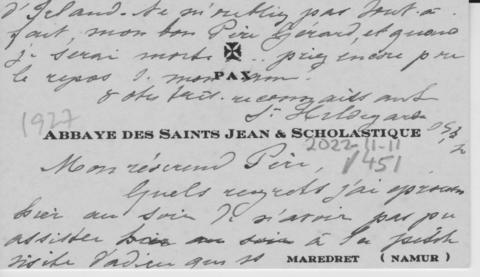 d'Irlande ne m'oubliez pas tout-à-
fait, mon bon Père Gérard, et quand
je serai morte ... priez encore pour
le repos d. mon âme.
PAX
Votre très reconnaissante
St Hildegarde
1927
ABBAYE DES SAINTS JEAN & SCHOLASTIQUE
2022-11-11
1451
Mon révérend Père,
Quels regrets j'ai éprouvés
hier au soir de n'avoir pas pu
assister hier au soir à la petite
visite d'adieu que
MAREDRET (NAMUR)